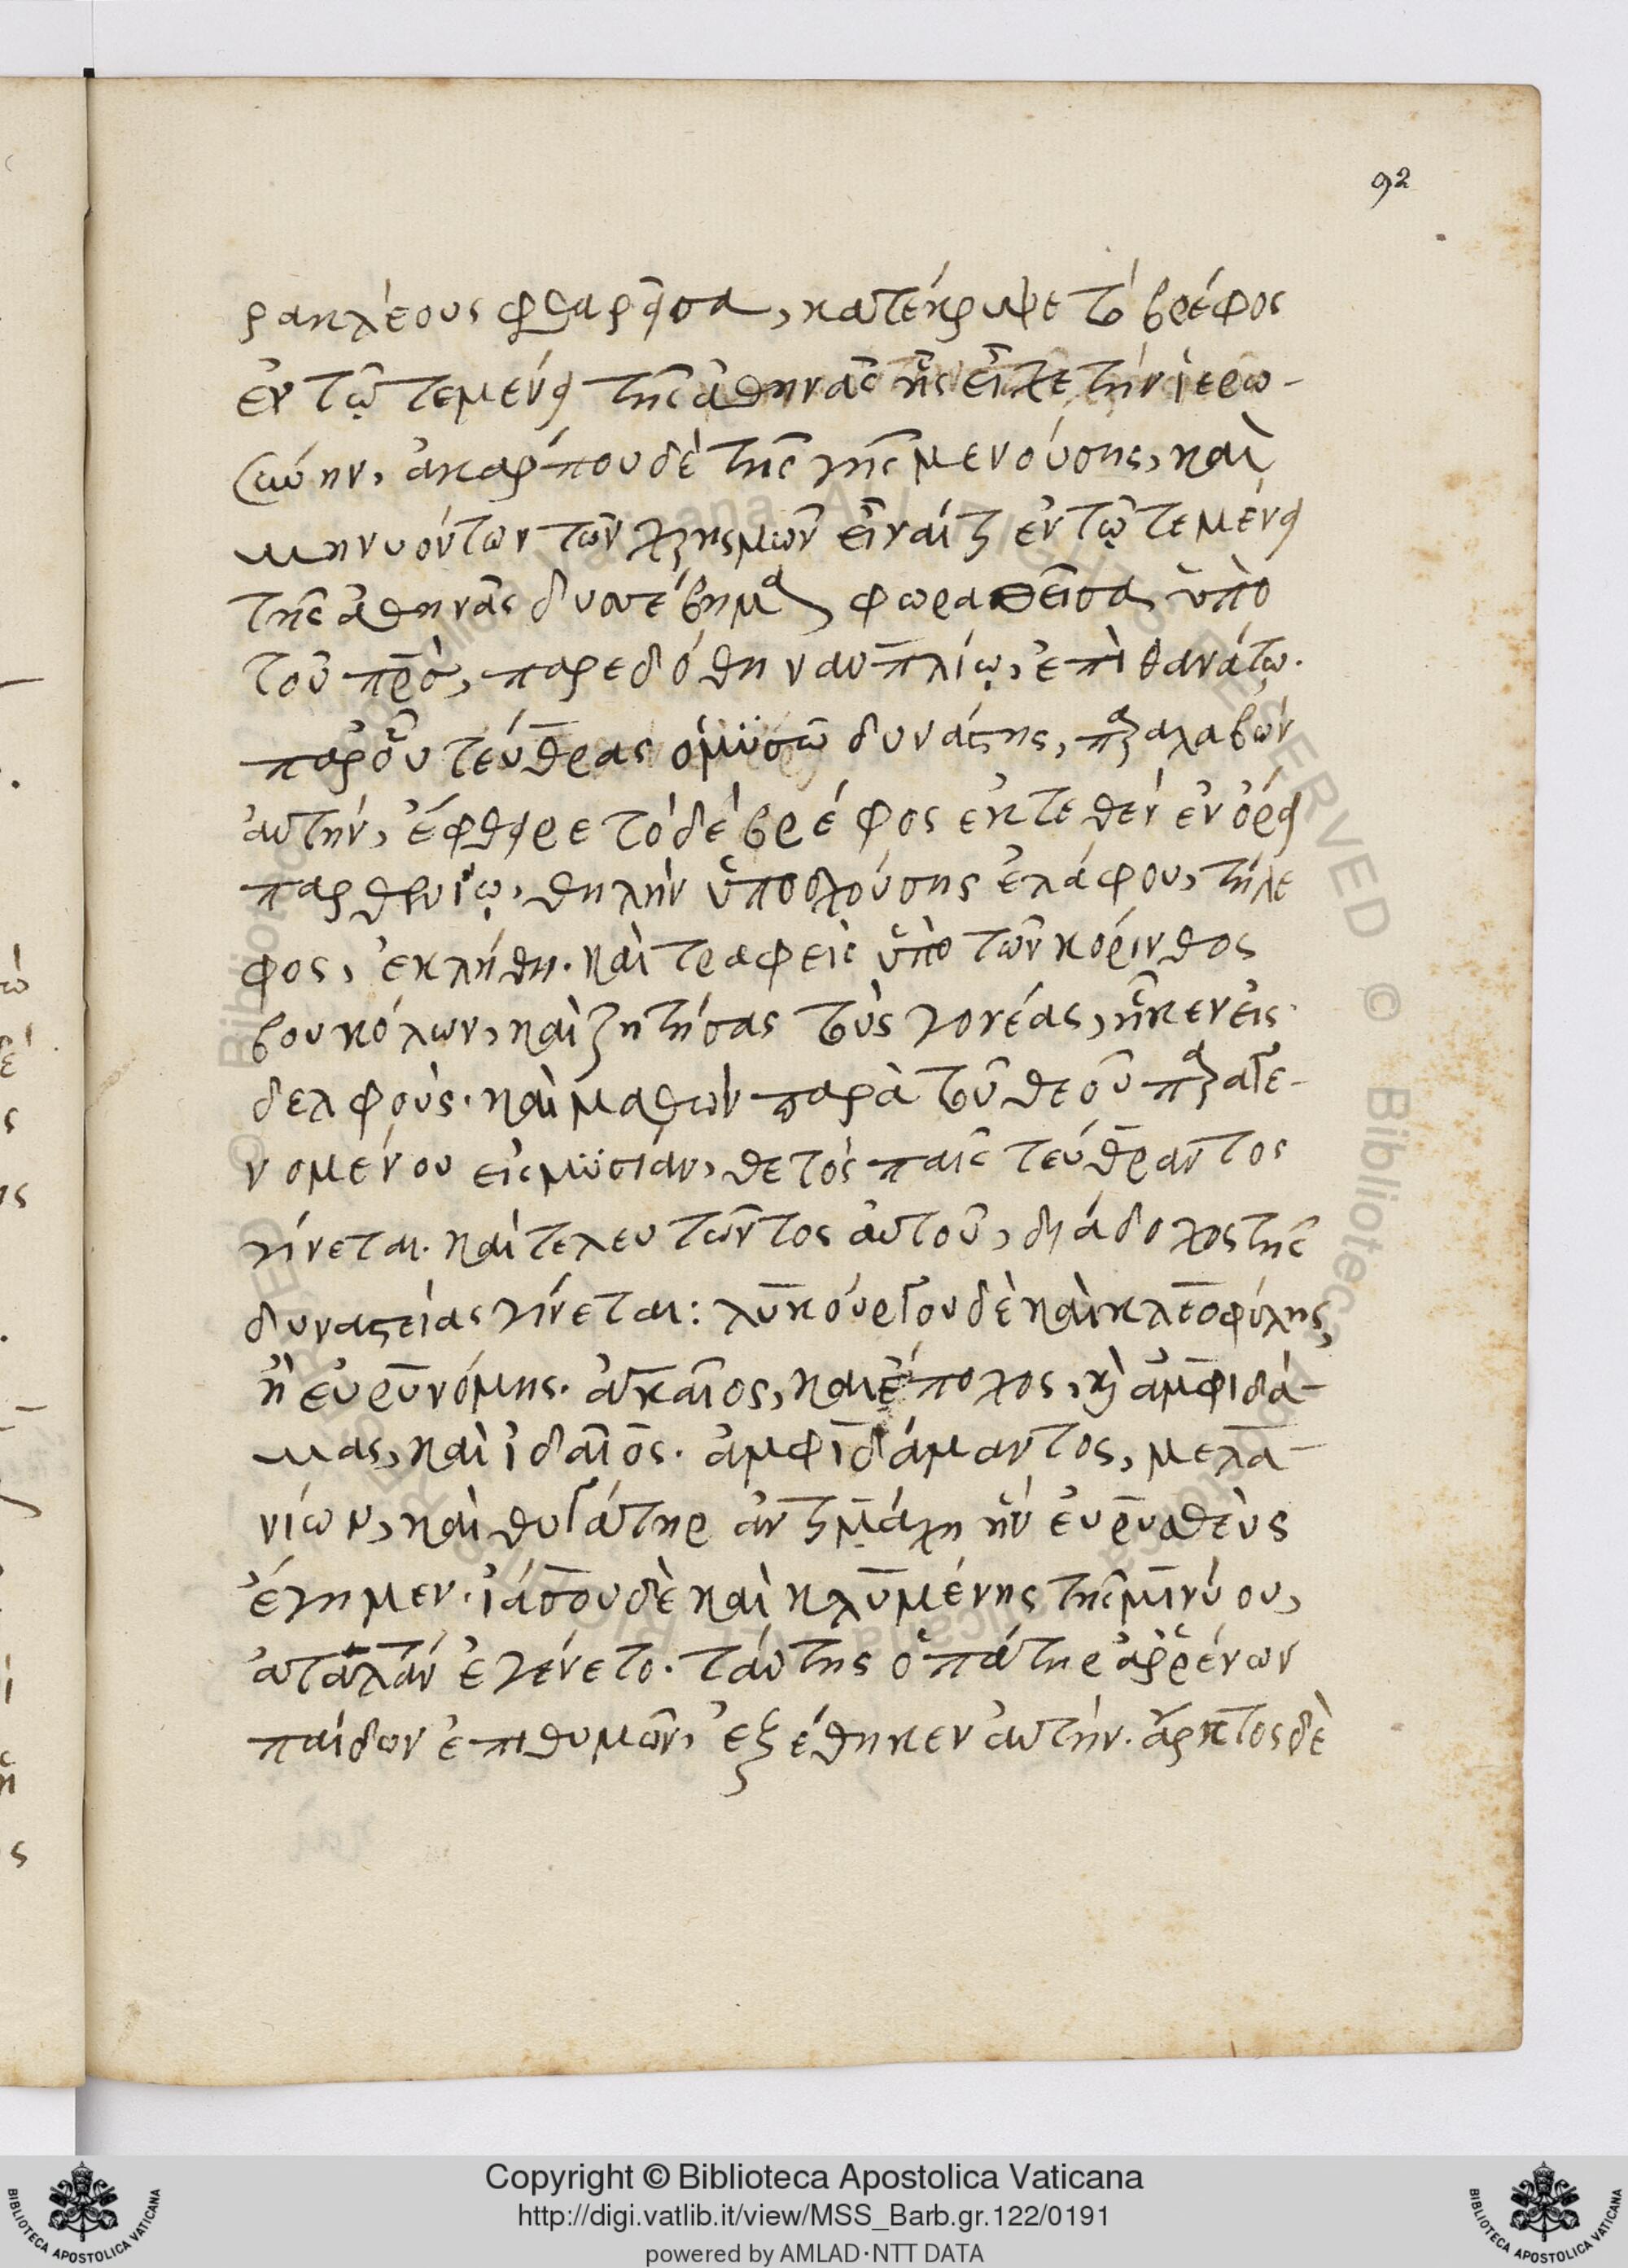 92
ρακλέους φθαρεῖσα, κατέκρυψε τὸ βρέφος
ἐν τῷ τεμένει τῆς ἀθηνᾶς ἧς εἶχε τὴν ἱερω-
σύνην, ἀκάρπου δὲ τῆς γῆς μενούσης, καὶ
μηνυόντων τῶν χρησμῶν εἶναί τι ἐν τῷ τεμένει
τῆς ἀθηνᾶς δυσσέβημα, φωραθεῖσα ὑπὸ
τοῦ πρς, παρεδόθη ναυπλίῳ, ἐπὶ θανάτῳ.
παρ' οὗ τεύθρας ὁ μϋσῶ δυνάστης, παραλαβὼν
αὐτὴν, ἔφθειρε τὸ δὲ βρέφος ἐκτεθὲν ἐν ὄρει
παρθενίῳ, θηλὴν ὑποσχούσης ἐλάφου, τήλε
φος, ἐκλήθη. καὶ τραφεὶς ὑπὸ τῶν κόρινθος
βουκόλων, καὶ ζητήσας τοὺς γονέας, ἧκεν εἰς
δελφούς. καὶ μαθὼν παρὰ τοῦ θεοῦ παραγε-
νομένου εἰς μϋσίαν, θετὸς παῖς τεύθραντος
γίνεται. καὶ τελευτῶντος αὐτοῦ, διάδοχος τῆς
δυναστείας γίνεται: λυκούργου δὲ καὶ κλεοφύλης
ἢ εὐρυνόμης. ἀγκαῖος, καὶ ἔποχος, καὶ ἀμφιδά-
μας, καὶ ἰδαῖος. ἀμφιδάμαντος, μελα-
νίων, καὶ θυγάτηρ ἀντιμάχη ἣν εὐρυσθεὺς
ἔγημεν. ἰάσου δὲ καὶ κλυμένης τῆς μινύου,
ἀταλάν ἐγένετο. ταύτης ὁ πατὴρ ἀῤῥένων
παίδων ἐπιθυμῶν, ἐξέθηκεν αὐτήν. ἄρκτος δὲ
Copyright © Biblioteca Apostolica Vaticana
http://digi.vatlib.it/view/MSS_Barb.gr.122/0191
powered by AMLAD·NTT DATA
BIBLIOTECA APOSTOLICA VATICANA
BIBLIOTECA APOSTOLICA VATICANA